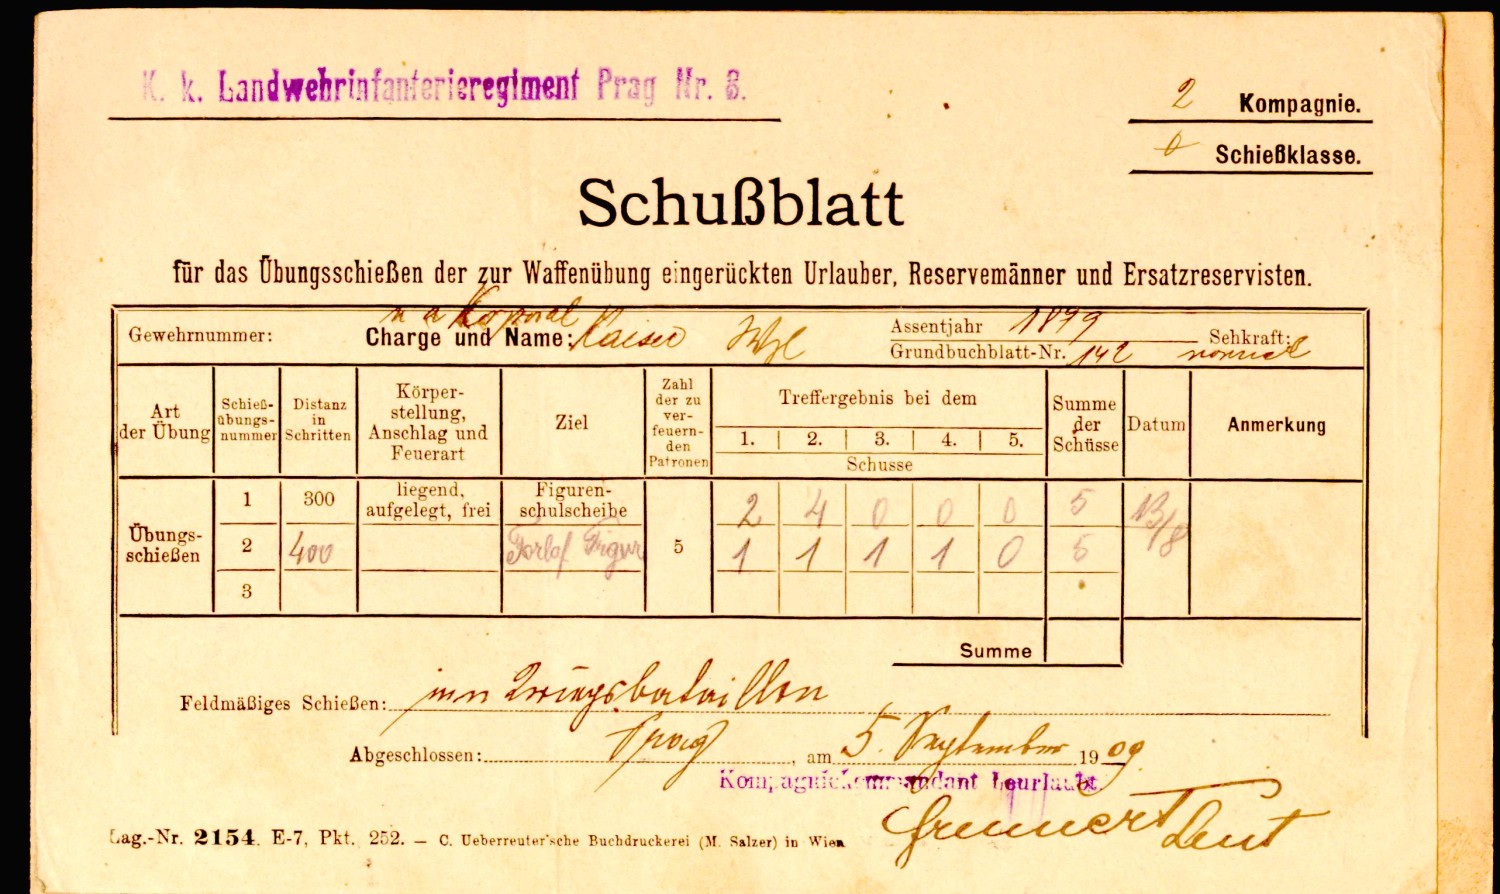 K. k. Landwehrinfanterieregiment Prag Nr. 8.
2 Kompagnie.
0 Schießklasse.
Schußblatt
für das Übungsschießen der zur Waffenübung eingerückten Urlauber, Reservemänner und Ersatzreservisten.
Gewehrnummer:
Charge und Name: Korporal Kaiser
Assentjahr 1899
Grundbuchblatt-Nr. 142
Sehkraft: normal
Art der Übung
Schieß-
übungs-
nummer
Distanz
in
Schritten
Körper-
stellung,
Anschlag und
Feuerart
Ziel
Zahl
der zu
ver-
feuern-
den
Patronen
Treffergebnis bei dem
1. 2. 3. 4. 5.
Schusse
Summe
der
Schüsse
Datum
Anmerkung
Übungs-
schießen
1 300 liegend,
aufgelegt, frei
Figuren-
schulscheibe
2 4 0 0 0 5 13/8
2 400 Figur 5 1 1 1 1 0 5
3
Summe
Feldmäßiges Schießen:
Abgeschlossen: Prag, am 5. September 1909
Kompagniekommandant beurlaubt
Lag.-Nr. 2154. E-7, Pkt. 252. — C. Ueberreuter'sche Buchdruckerei (M. Salzer) in Wien